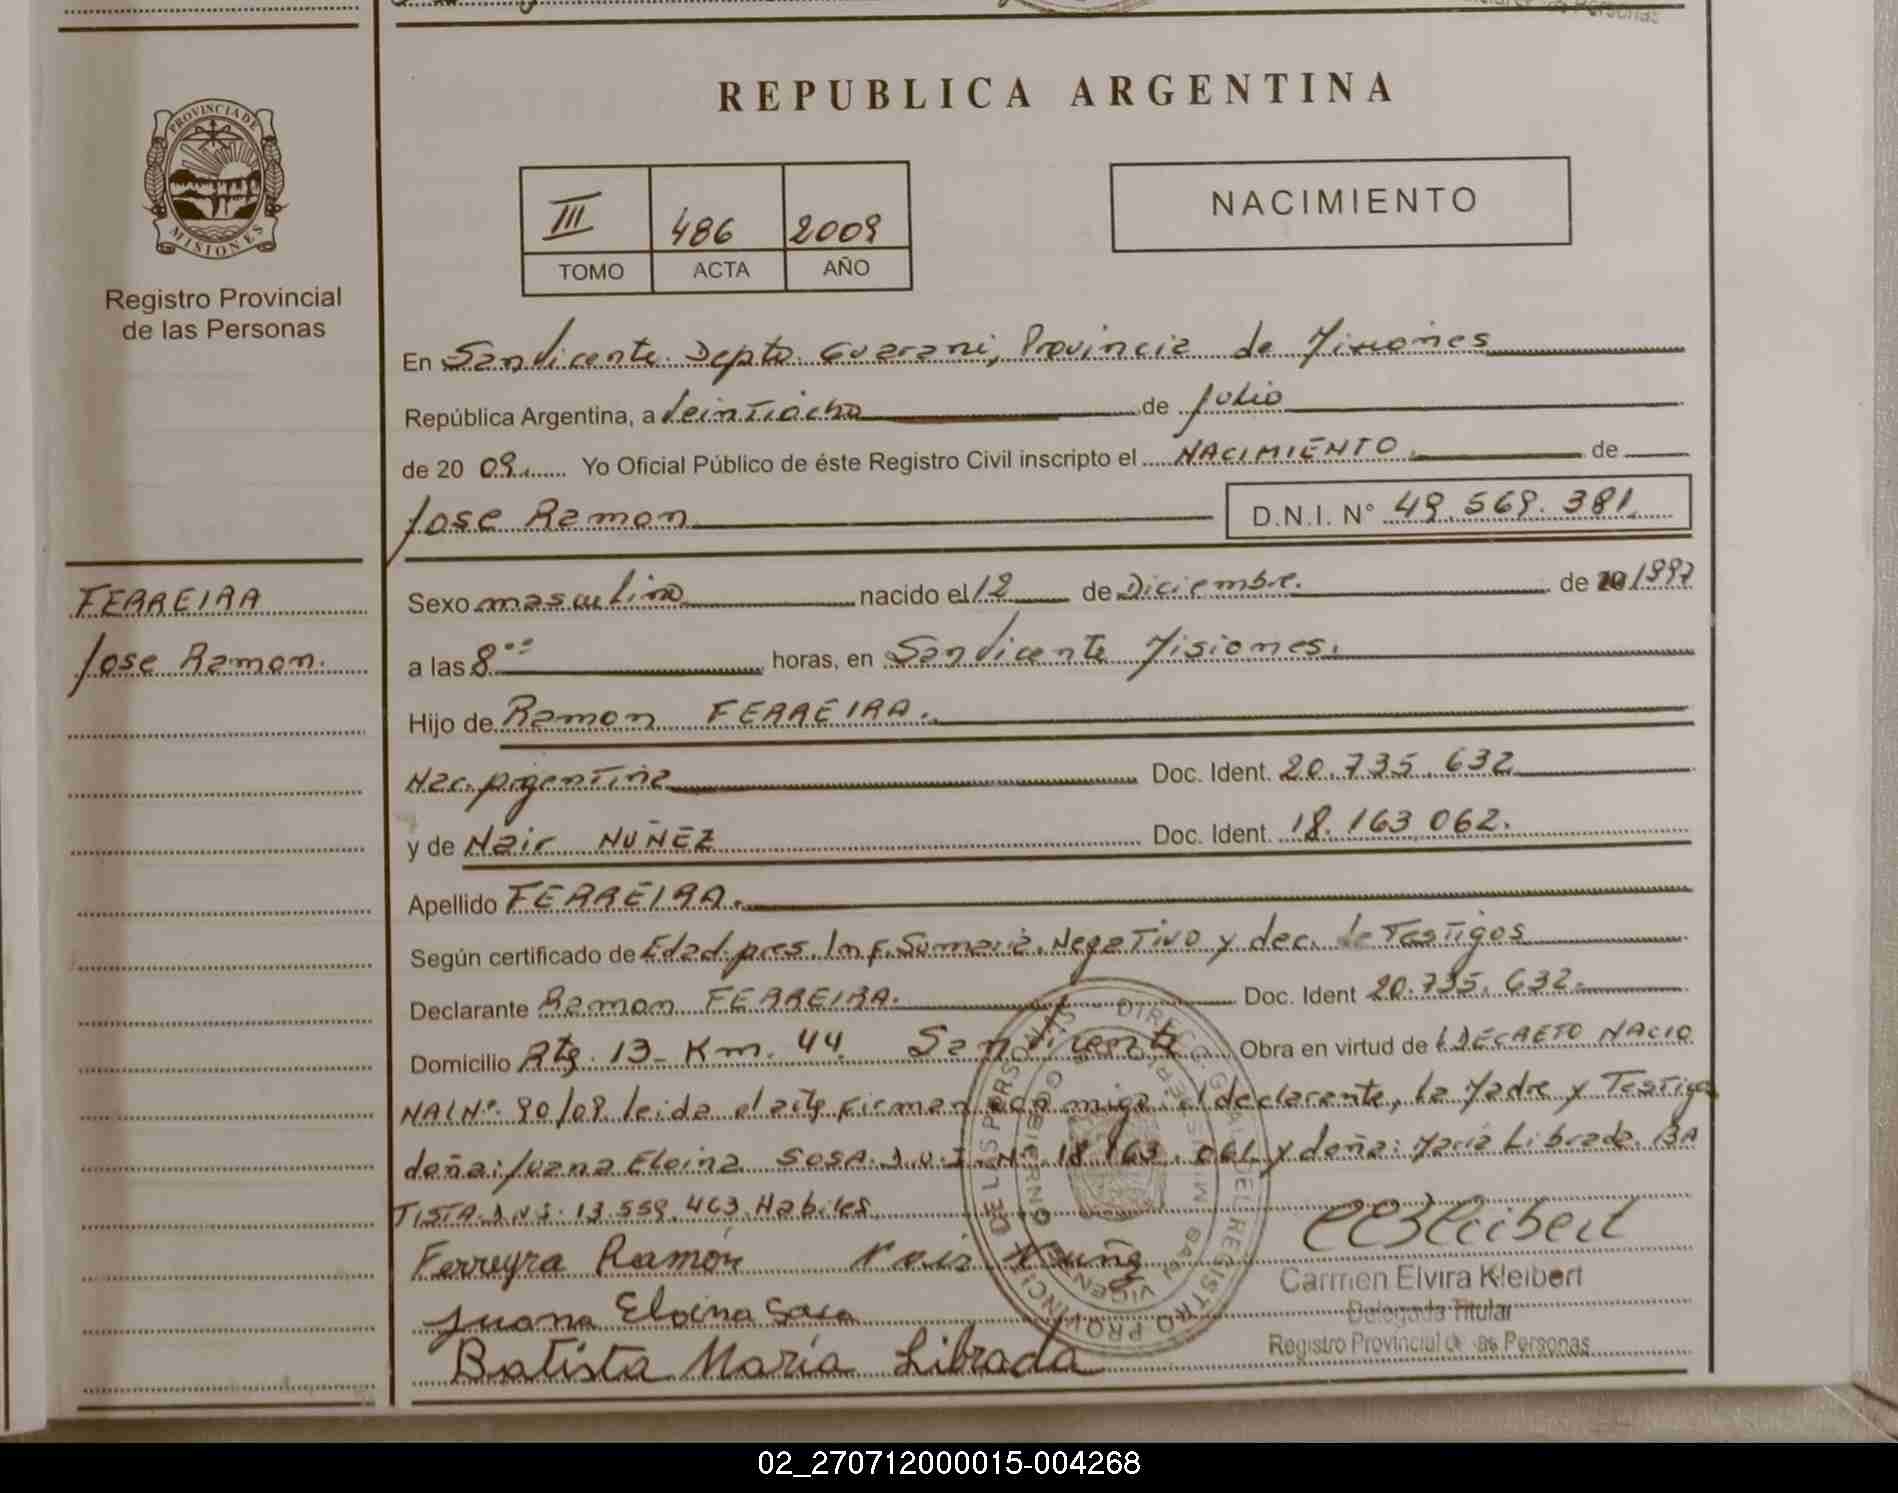 REPUBLICA ARGENTINA
PROVINCIA DE
MISIONES
Registro Provincial
de las Personas
III 486 2009
TOMO ACTA AÑO
NACIMIENTO
En San Vicente Depto. Guarani, Provincia de Misiones
República Argentina, a Veintiocho de Julio
de 20 09 Yo Oficial Público de éste Registro Civil inscripto el NACIMIENTO de
Jose Ramon D.N.I. N° 49.569.381
FERREIRA
Jose Ramon.
Sexo masculino nacido el 12 de Diciembre de 1997
a las 8 horas, en San Vicente Misiones.
Hijo de Ramon FERREIRA.
Nac. Argentina Doc. Ident. 20.735.632
y de Nair NUÑEZ Doc. Ident. 18.163.062.
Apellido FERREIRA.
Según certificado de Edad pres. Inf. Sumaria. Negativo y dec. de Testigos
Declarante Ramon FERREIRA. Doc. Ident 20.735.632.
Domicilio Rta. 13 - Km. 44 San Vicente Obra en virtud de DECRETO NACIO
NAL Nº 90/09 leida el acta firman el declarante, la Madre y Testigos
doña: Juana Eloina SOSA. D.N.I. Nº 18.163.061 y doña: Maria Librada. BA
TISTA. D.N.I. 13.559.463. Habiles
Ferreyra Ramón Nair Nuñe
Juana Eloina Sosa
Batista Maria Librada
CEKleibert
Carmen Elvira Kleibert
Delegada Titular
Registro Provincial de las Personas
02_270712000015-004268